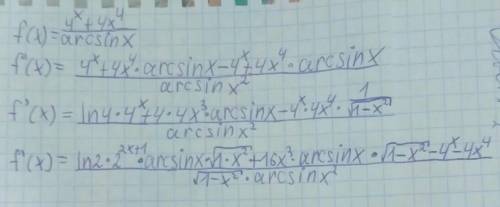 f(x) = \frac{4^x + 4x^4}{arcsinx}
f'(x) = \frac{4^x + 4x^4 \cdot arcsinx - 4^x + 4x^4 \cdot arcsinx}{arcsinx^2}
f'(x) = \frac{ln4 \cdot 4^x + 4 \cdot 4x^3 \cdot arcsinx - 4^x \cdot 4x^4 \cdot \frac{1}{\sqrt{1-x^2}}}{arcsinx^2}
f'(x) = \frac{ln2 \cdot 2^{2x+1} \cdot arcsinx \cdot \sqrt{1-x^2} + 16x^3 \cdot arcsinx \cdot \sqrt{1-x^2} - 4^x - 4x^4}{\sqrt{1-x^2} \cdot arcsinx^2}